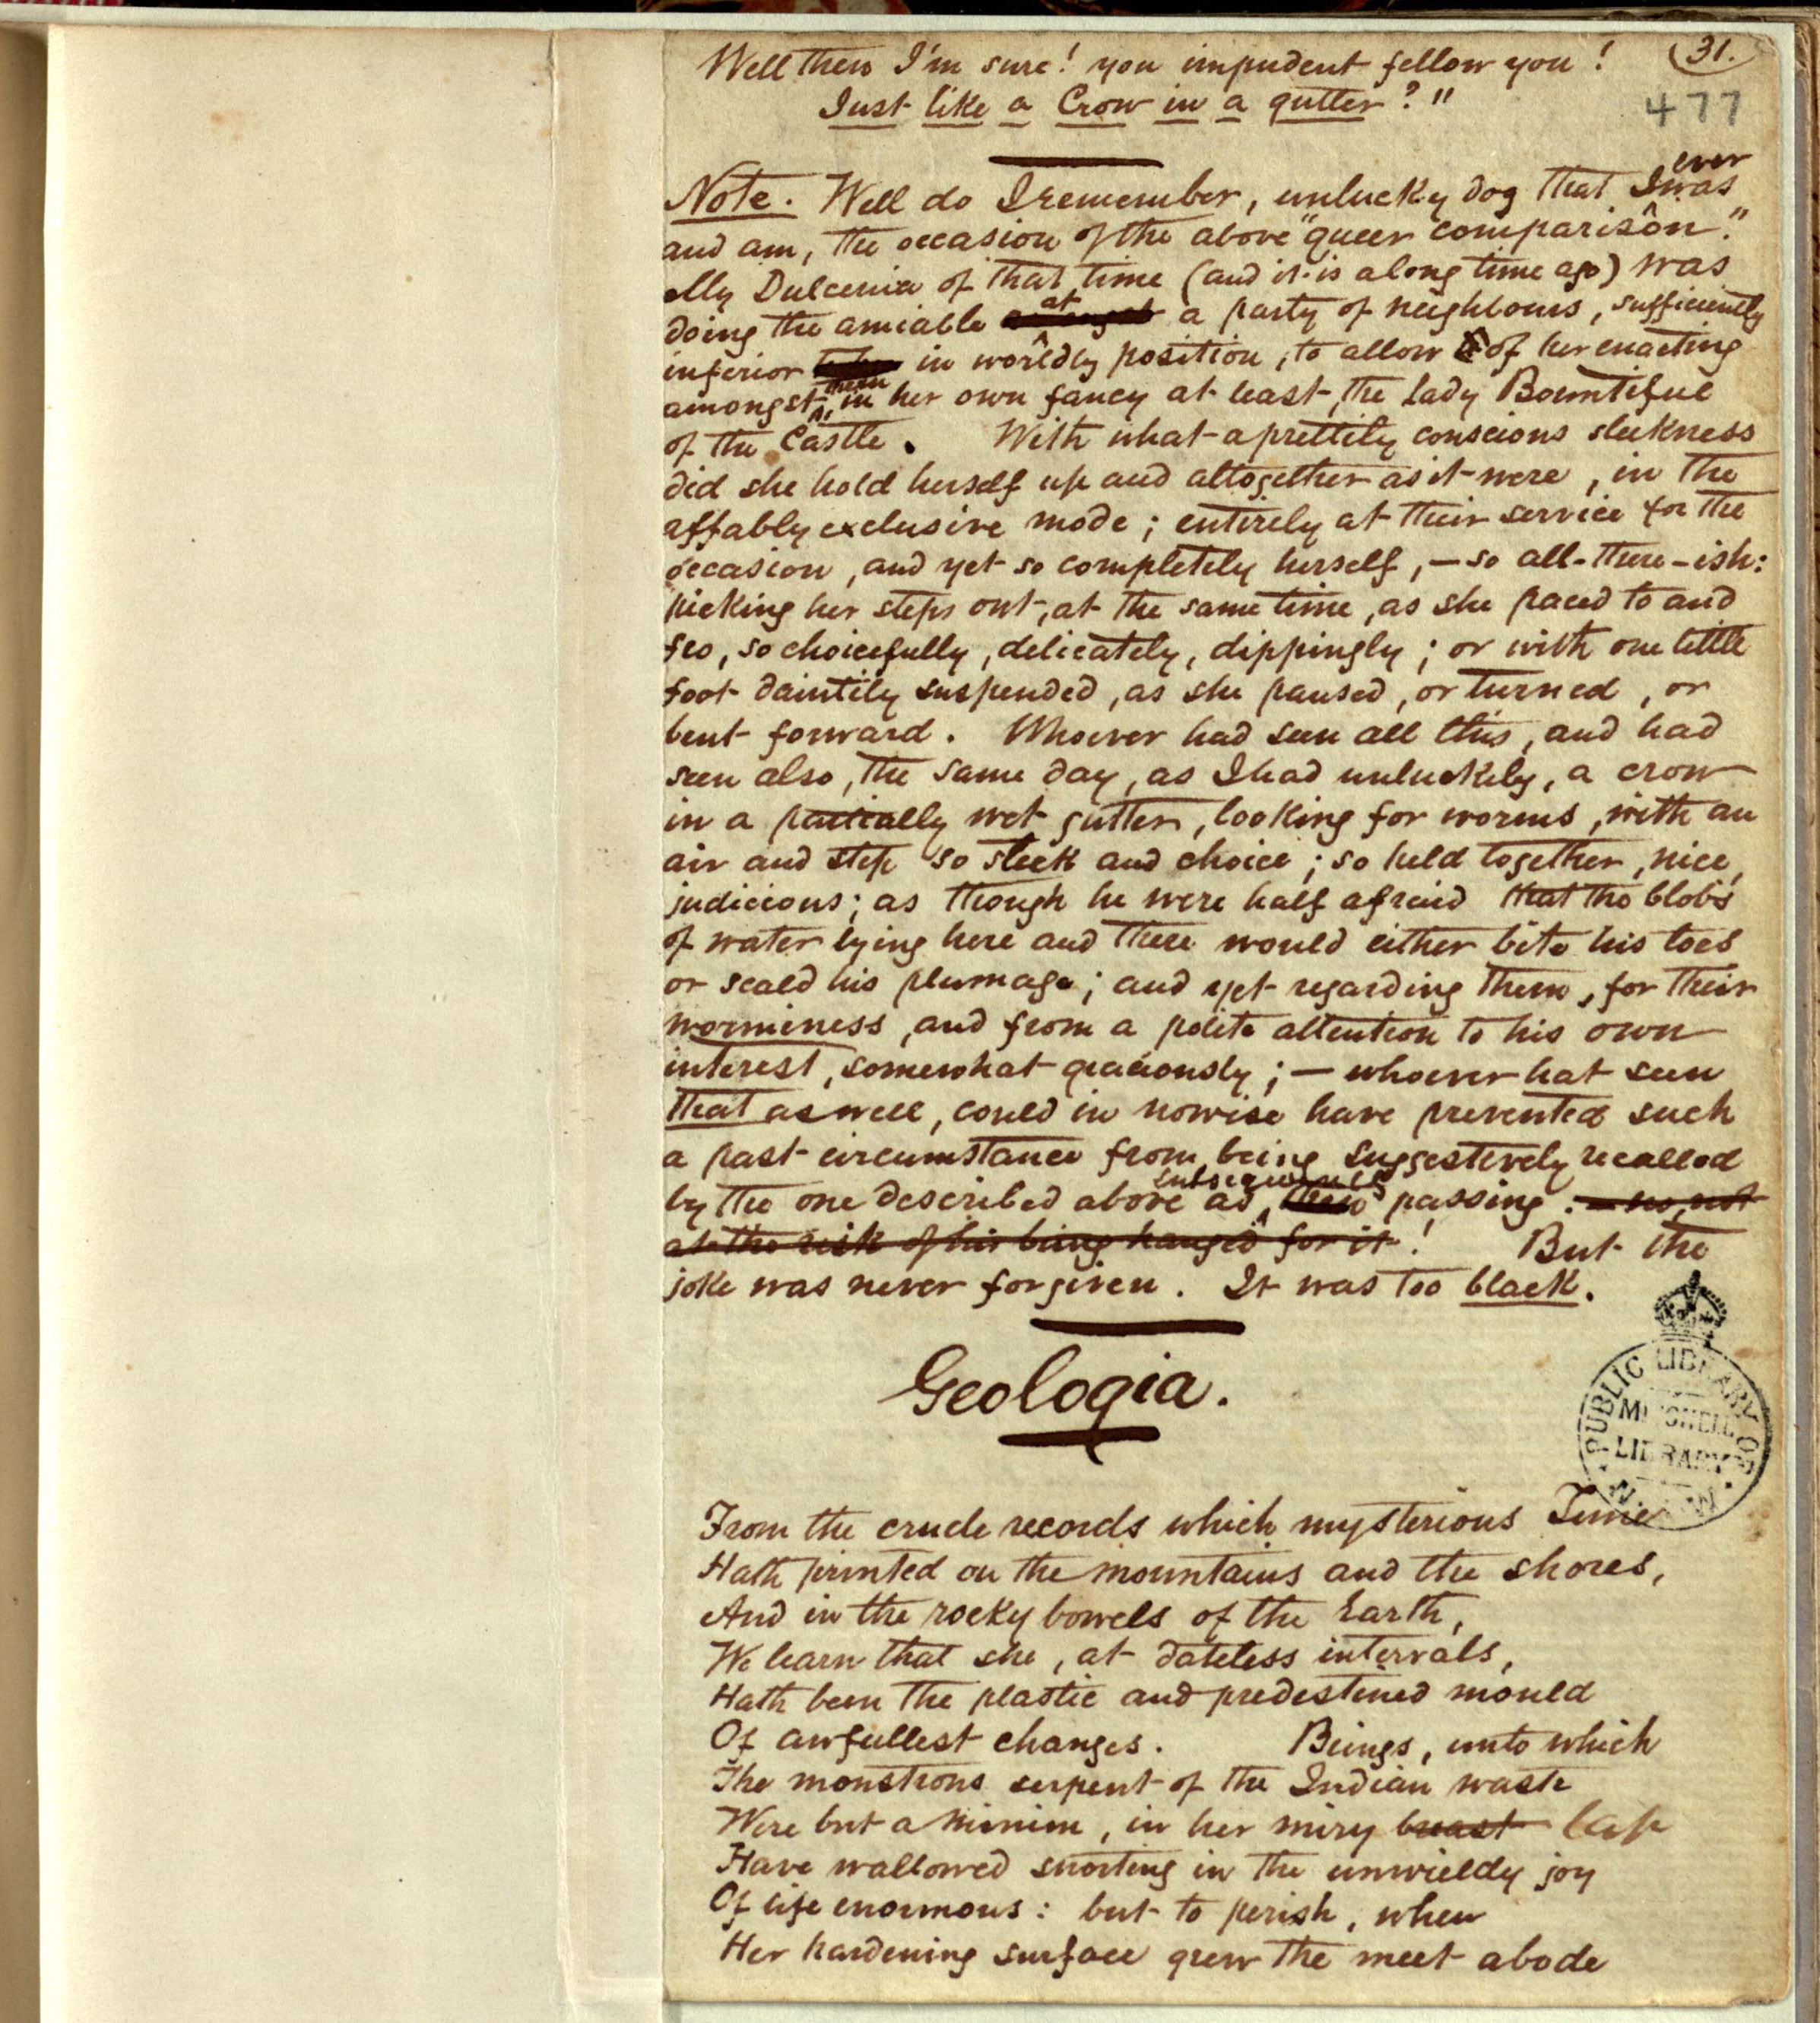 Well then I'm sure! you impudent fellow you! 31.
Just like a Crow in a gutter?" 477
Note. Well do I remember, unlucky dog that I ever was
and am, the occasion of the above "queer comparison."
My Dulcenia of that time (and it is a long time ago) was
doing the amiable at a party of neighbours, sufficiently
inferior in worldly position, to allow of her enacting
amongst them, in her own fancy at least, the Lady Bountiful
of the Castle. With what a prettily conscious sleekness
did she hold herself up and altogether as it were, in the
affably exclusive mode; entirely at their service for the
occasion, and yet so completely herself, — so all-there-ish:
picking her steps out, at the same time, as she paced to and
fro, so choicefully, delicately, dippingly; or with one little
foot daintily suspended, as she paused, or turned, or
bent forward. Whoever had seen all this, and had
seen also, the same day, as I had unluckily, a crow
in a partially wet gutter, looking for worms, with an
air and step so sleek and choice; so held together, nice,
judicious; as though he were half afraid that the blobs
of water lying here and there would either bite his toes
or scald his plumage; and yet regarding them, for their
worminess, and from a polite attention to his own
interest, somewhat graciously; — whoever hat seen
that as well, could in nowise have prevented such
a past circumstance from being suggestively recalled
by the one described above as subsequently passing: — no, not
at the risk of his being hanged for it! But the
joke was never forgiven. It was too black.
Geologia.
PUBLIC LIBRARY OF N.S.W.
MITCHELL
LIBRARY
From the crude records which mysterious Time
Hath printed on the mountains and the shores,
And in the rocky bowels of the Earth,
We learn that she, at dateless intervals,
Hath been the plastic and predestined mould
Of awfullest changes. Beings, unto which
The monstrous serpent of the Indian waste
Were but a minim, in her miry breast lap
Have wallowed snorting in the unwieldy joy
Of life enormous: but to perish, when
Her hardening surface grew the meet abode